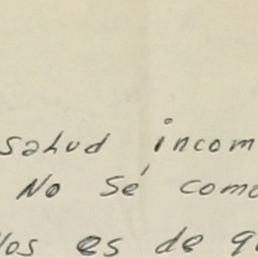 salud incom
No sé como
los es de qu